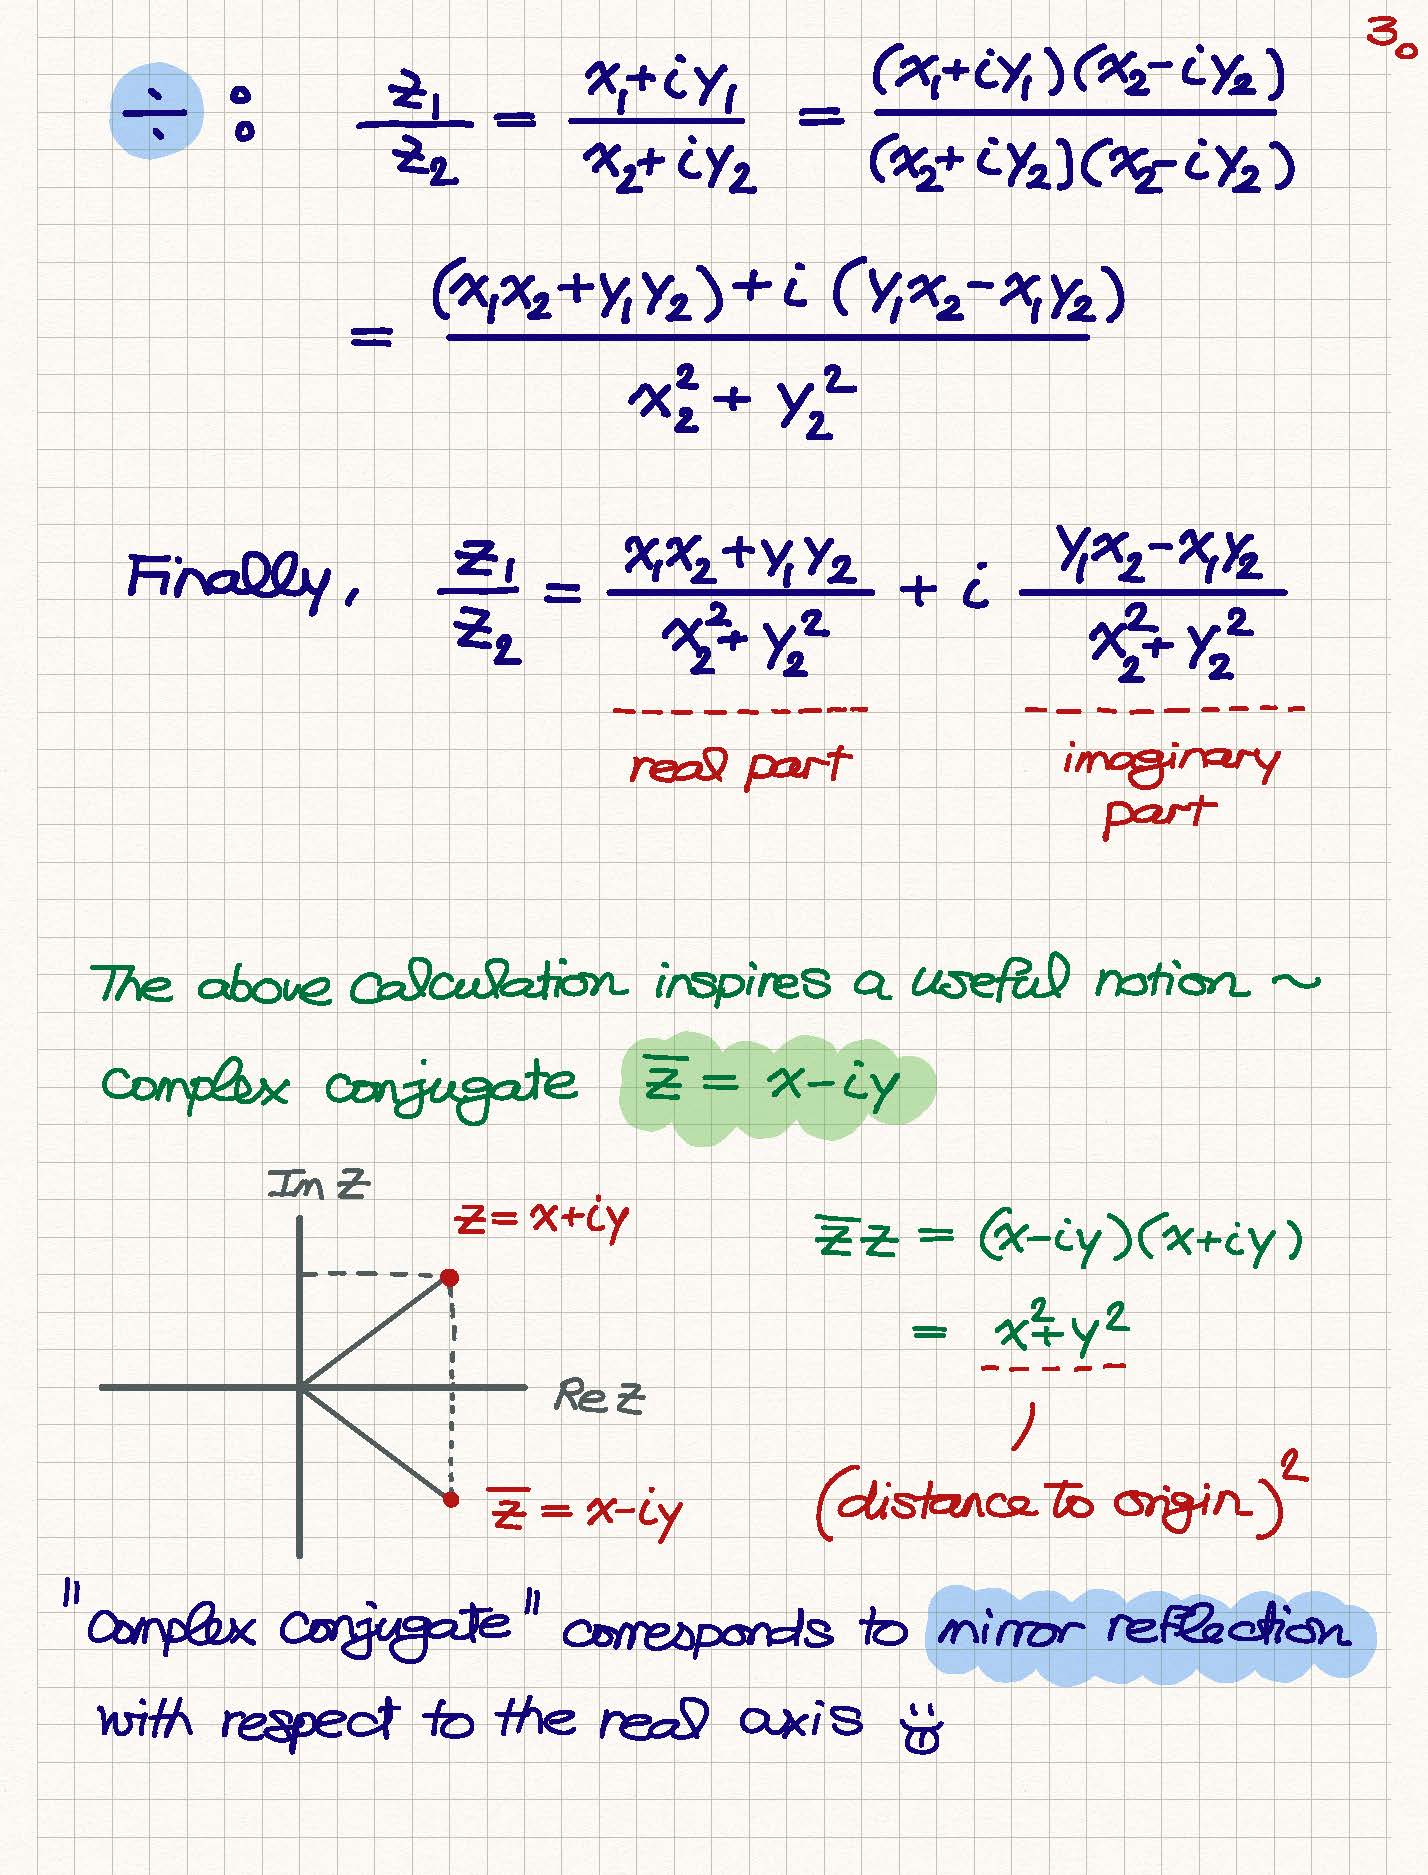 3.
÷ : z₁/z₂ = (x₁+iy₁)/(x₂+iy₂) = (x₁+iy₁)(x₂-iy₂)/(x₂+iy₂)(x₂-iy₂)
= ((x₁x₂+y₁y₂)+i(y₁x₂-x₁y₂))/(x₂²+y₂²)
Finally, z₁/z₂ = (x₁x₂+y₁y₂)/(x₂²+y₂²) + i (y₁x₂-x₁y₂)/(x₂²+y₂²)
real part imaginary
part
The above calculation inspires a useful notion ~
complex conjugate z̅ = x-iy
Im z
z = x+iy
z̅z = (x-iy)(x+iy)
= x²+y²
Re z
(distance to origin)²
z̅ = x-iy
"complex conjugate" corresponds to mirror reflection
with respect to the real axis